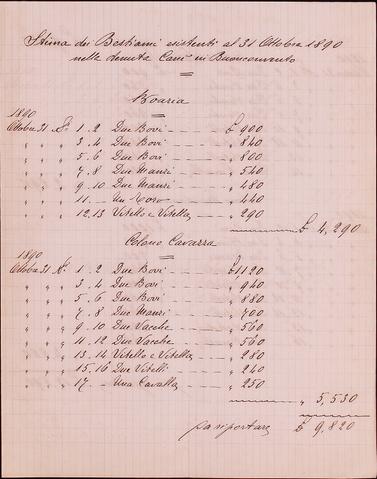 Stima dei Bestiami esistenti al 31 Ottobre 1890
nella tenuta in Buonconvento
Boaria
1890
Ottobre 31 N.° 1. 2 Due Bovi £ 900
" " " 3. 4 Due Bovi " 840
" " " 5. 6 Due Bovi " 800
" " " 7. 8 Due Manzi " 540
" " " 9. 10 Due Manzi " 480
" " " 11. Un Toro " 440
" " " 12. 13 Vitello e Vitella " 290
£ 4,290
Colono Cavarra
1890
Ottobre 31 N.° 1. 2 Due Bovi £ 1120
" " " 3. 4 Due Bovi " 940
" " " 5. 6 Due Bovi " 880
" " " 7. 8 Due Manzi " 700
" " " 9. 10 Due Vacche " 560
" " " 11. 12 Due Vacche " 560
" " " 13. 14 Vitello e Vitella " 280
" " " 15. 16 Due Vitelli " 240
" " " 17. Una Cavalla " 250
" 5,530
da riportare £ 9,820